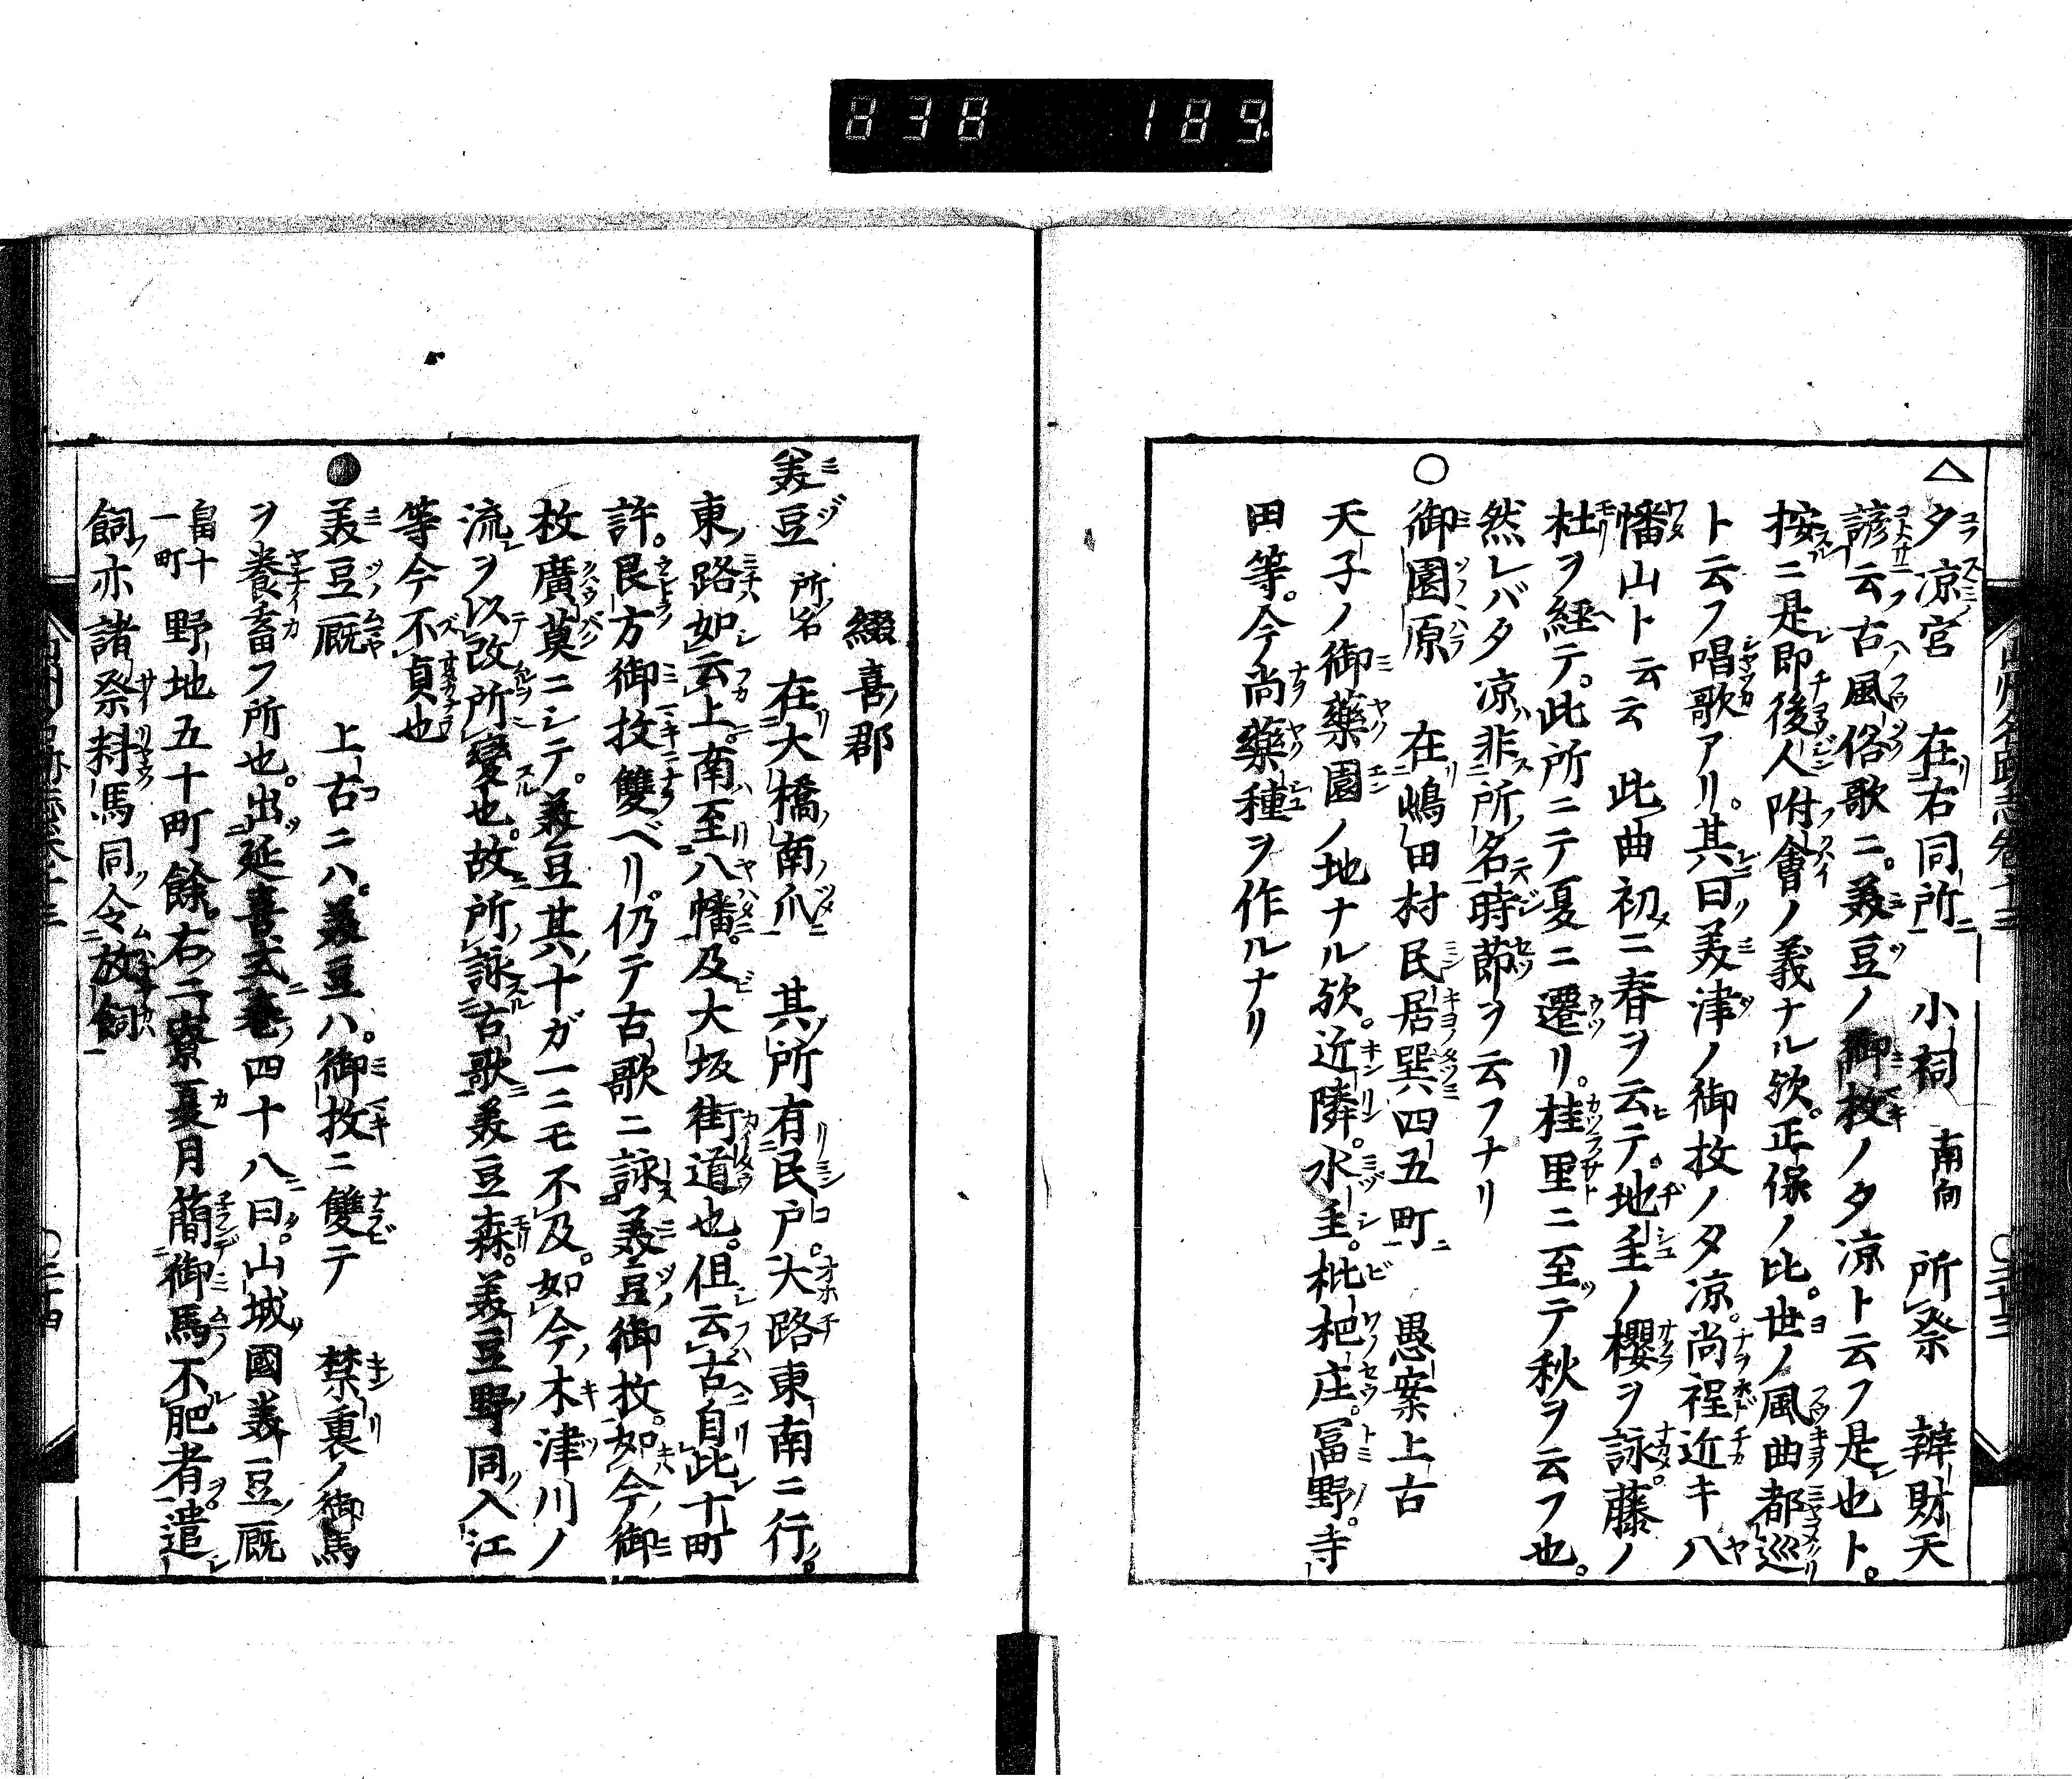 838 189
△夕凉宮 在右同所 小祠 南向 所祭 辨財天
諺云古風俗歌ニ。美豆ノ御牧ノ夕凉ト云フ是也ト。
按ニ是即後人附會ノ義ナル欤。正保ノ比。世ノ風曲都巡
ト云フ唱歌アリ。其曰美津ノ御牧ノ夕凉。尚程近キ八
幡山ト云云 此曲初ニ春ヲ云テ。地主ノ櫻ヲ詠。藤ノ
杜ヲ経テ。此所ニテ夏ニ遷リ。桂里ニ至テ秋ヲ云フ也。
然レバ夕凉非所名時節ヲ云フナリ
○御園原 在嶋田村民居巽四五町 愚案上古
天子ノ御藥園ノ地ナル欤。近隣。水主。枇杷庄。冨野。寺
田等。今尚藥種ヲ作ルナリ
綴喜郡
美豆 所名 在大橋南爪 其所有民戸。大路東南ニ行。
東路如云上。南至八幡。及大坂街道也。但云古自此十町
許。艮方御牧雙ベリ。仍テ古歌ニ詠美豆御牧。如今御
牧廣莫ニシテ。美豆其十ガ一ニモ不及。如今木津川ノ
流ヲ以改所變也。故所詠古歌美豆森。美豆野同入江
等今不貞也
●美豆厩 上古ニハ。美豆ハ。御牧ニ雙テ 禁裏ノ御馬
ヲ養畜フ所也。出延喜式巻四十八曰。山城國美豆厩
畠十一町 野地五十町餘。右二寮夏月簡御馬不肥者遣
飼亦諸祭料馬同令放飼